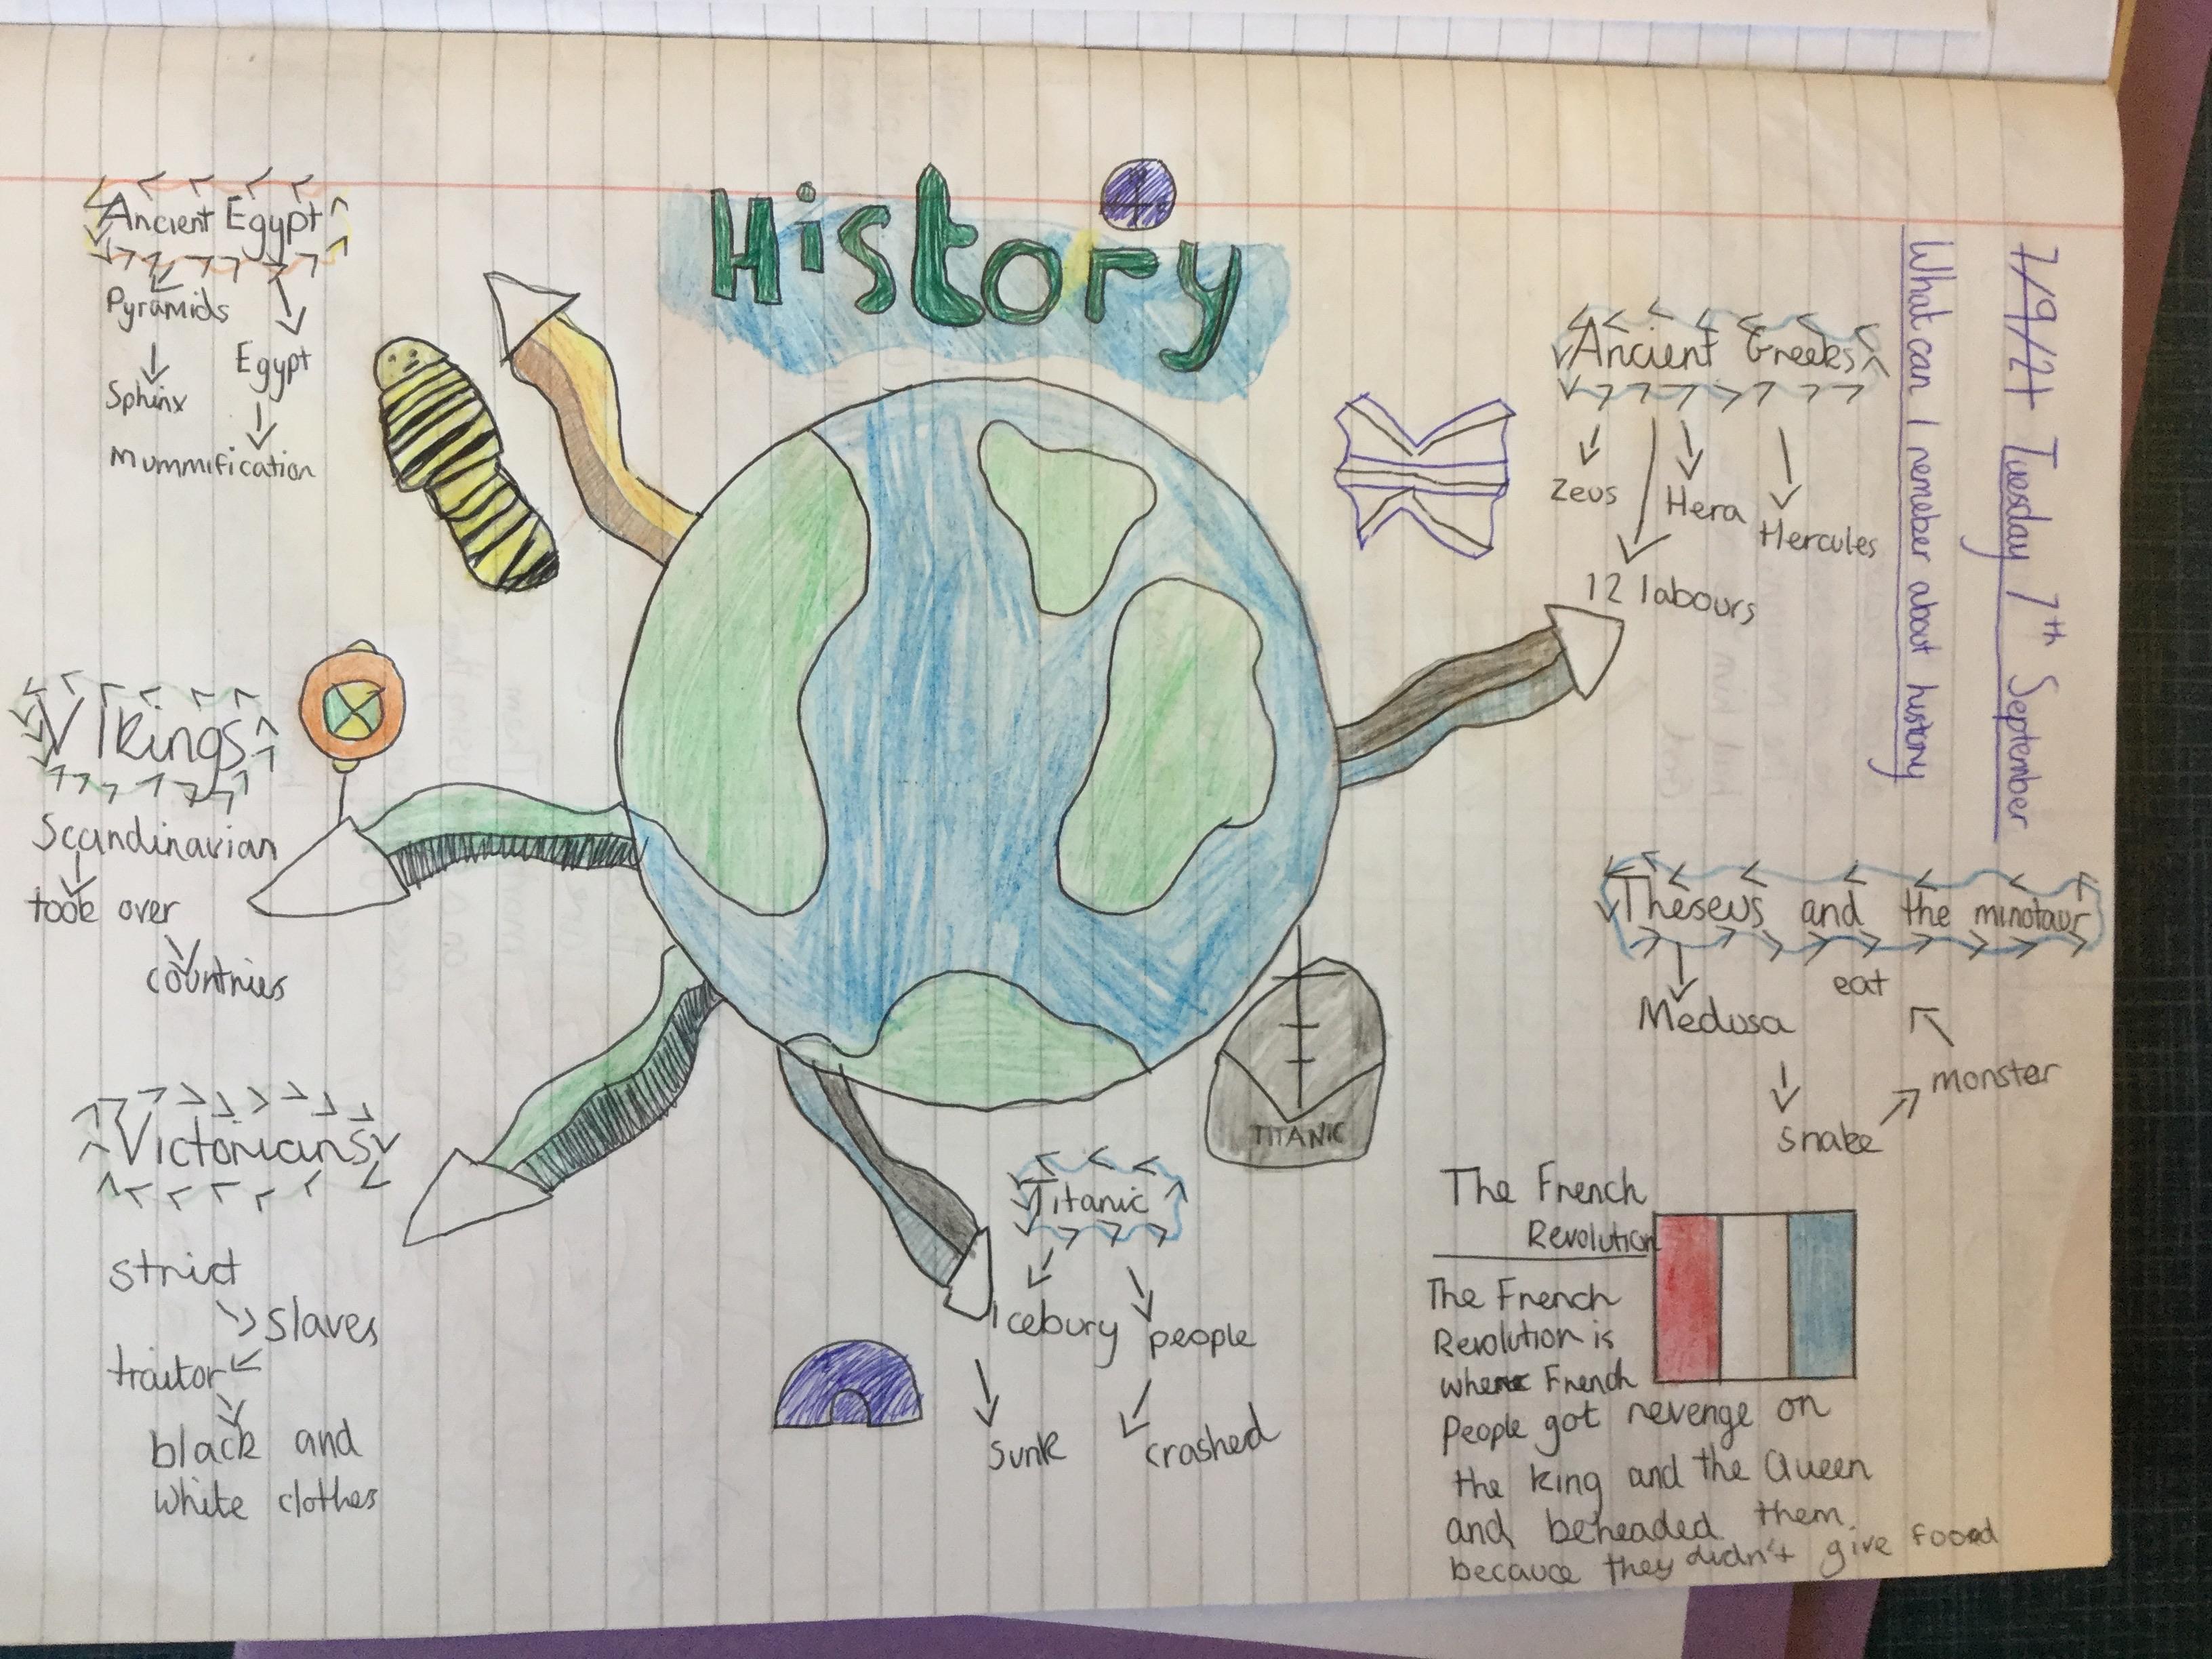 7/9/21 Tuesday 7th September
What can I remeber about history
History
Ancient Egypt
Pyramids
Egypt
Sphinx
Mummification
Vikings
Scandinavian
took over
countries
Victorians
strict
slaves
traitor
black and
white clothes
Titanic
Icebury
people
sunk
crashed
TITANIC
Ancient Greeks
Zeus
Hera
Hercules
12 labours
Theseus and the minotaur
eat
Medusa
monster
snake
The French
Revolution
The French
Revolution is
where French
People got revenge on
the king and the Queen
and beheaded them.
because they didn't give food